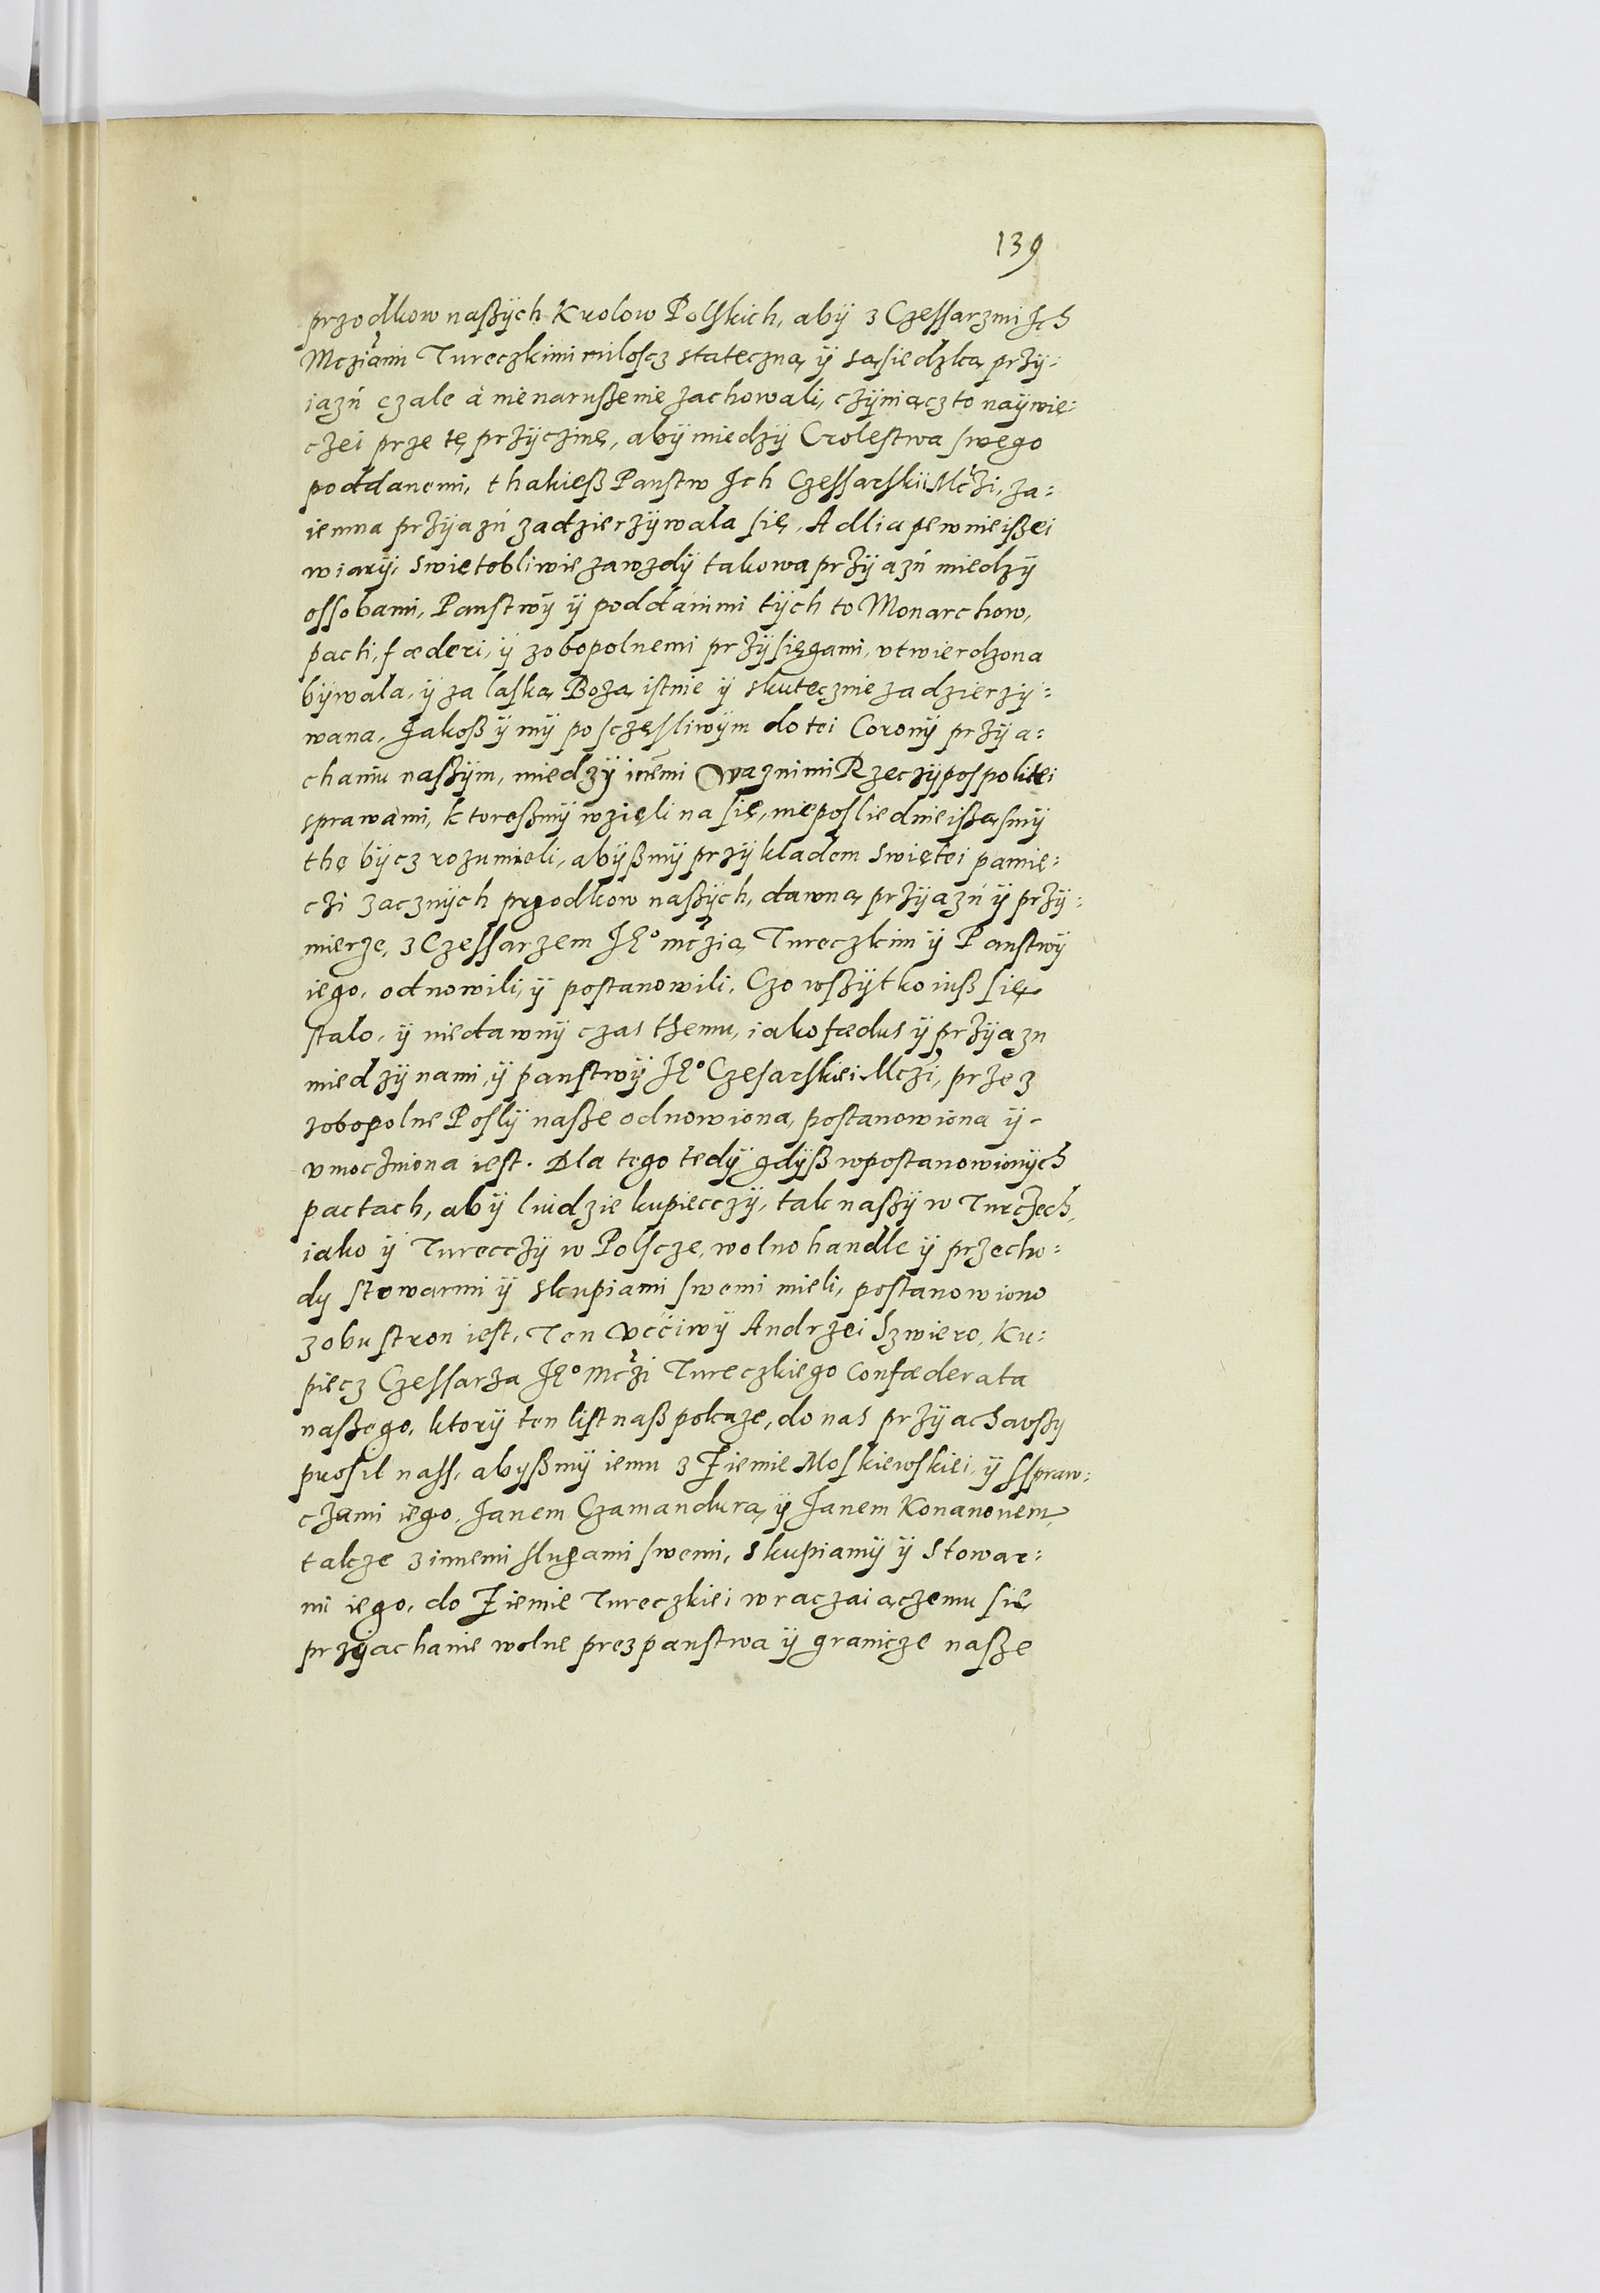 139
przodkow naßÿch Krolow Polſkich, abÿ z Czeſſarzmi Ich
Mcziami Tureczkimi miloscz stateczną ÿ sąsiedzką przÿ=
iazń czale à nienarußenie zachowali, czÿniącz to naÿwie=
czei prze tę przÿczinę, abÿ miedzÿ Crolestwa swego
poddanemi, thakieß Panstw Ich Czeſſarſkii Mczi, za=
iemna przÿazń zadzierzÿwala się. A dlia pewnieißei
wiarÿ, swietobliwie zawzdÿ takowa przÿazń miedzÿ
oſſobami, Panstwÿ ÿ poddanimi tÿch to Monarchow,
pacti, fœderi, ÿ zobopolnemi przÿsięgami, vtwierdzona
bÿwala, ÿ za laską Bożą istnie ÿ skutecznie zadzierzÿ=
wana, Iakoß ÿ mÿ po sczęsliwÿm do tei Coronÿ przÿa=
chaniu naßÿm, miedzÿ inemi Waznimi Rzeczÿpospolitei
sprawami, ktoreßmÿ wzięli na się, nieposliednieißąsmÿ
thę bÿcz rozumieli, abÿßmÿ przÿkladem swiętei pamię=
czi zacznÿch przodkow naßÿch, dawną przÿazń ÿ przÿ=
mierze, z Czeſſarzem Iº mczią Tureczkim ÿ Panstwÿ
iego, odnowili, ÿ postanowili, Czo wßÿtko iuß się
stalo, ÿ niedawnÿ czas themu, iako fœdus ÿ przÿazn
miedzÿ nami, ÿ panstwÿ Iº Czesarſkiei Mczi, przez
zobopolne Poslÿ naße odnowiona, postanowiona ÿ
vmoczniona iest. Dla tego tedÿ gdÿß w postanowionÿch
pactach, abÿ luidzie kupieczÿ, tak naßÿ w Turczech,
iako ÿ Tureczÿ w Polscze, wolno handle ÿ przecho=
dy stowarmi ÿ skupiami swemi mieli, postanowiono
z obu stron iest, Ten vcciwÿ Andrzei Szwiero, Ku=
piecz Czeſſarza Iº Mczi Tureczkiego Confœderata
naßego, ktorÿ ten list naß pokaze, do nas przÿachawßy
prosil naſſ, abyßmÿ iemu z Ziemie Moskiewſkiei, ÿ Sspraw=
czami iego, Ianem Czamandurą ÿ Ianem Konanovem,
takze z innemi slugami swemi, skupiamÿ ÿ Stowar=
mi iego, do Ziemie Tureczkiei wraczaiączemu się
przÿachanie wolne prez panstwa ÿ granicze naße